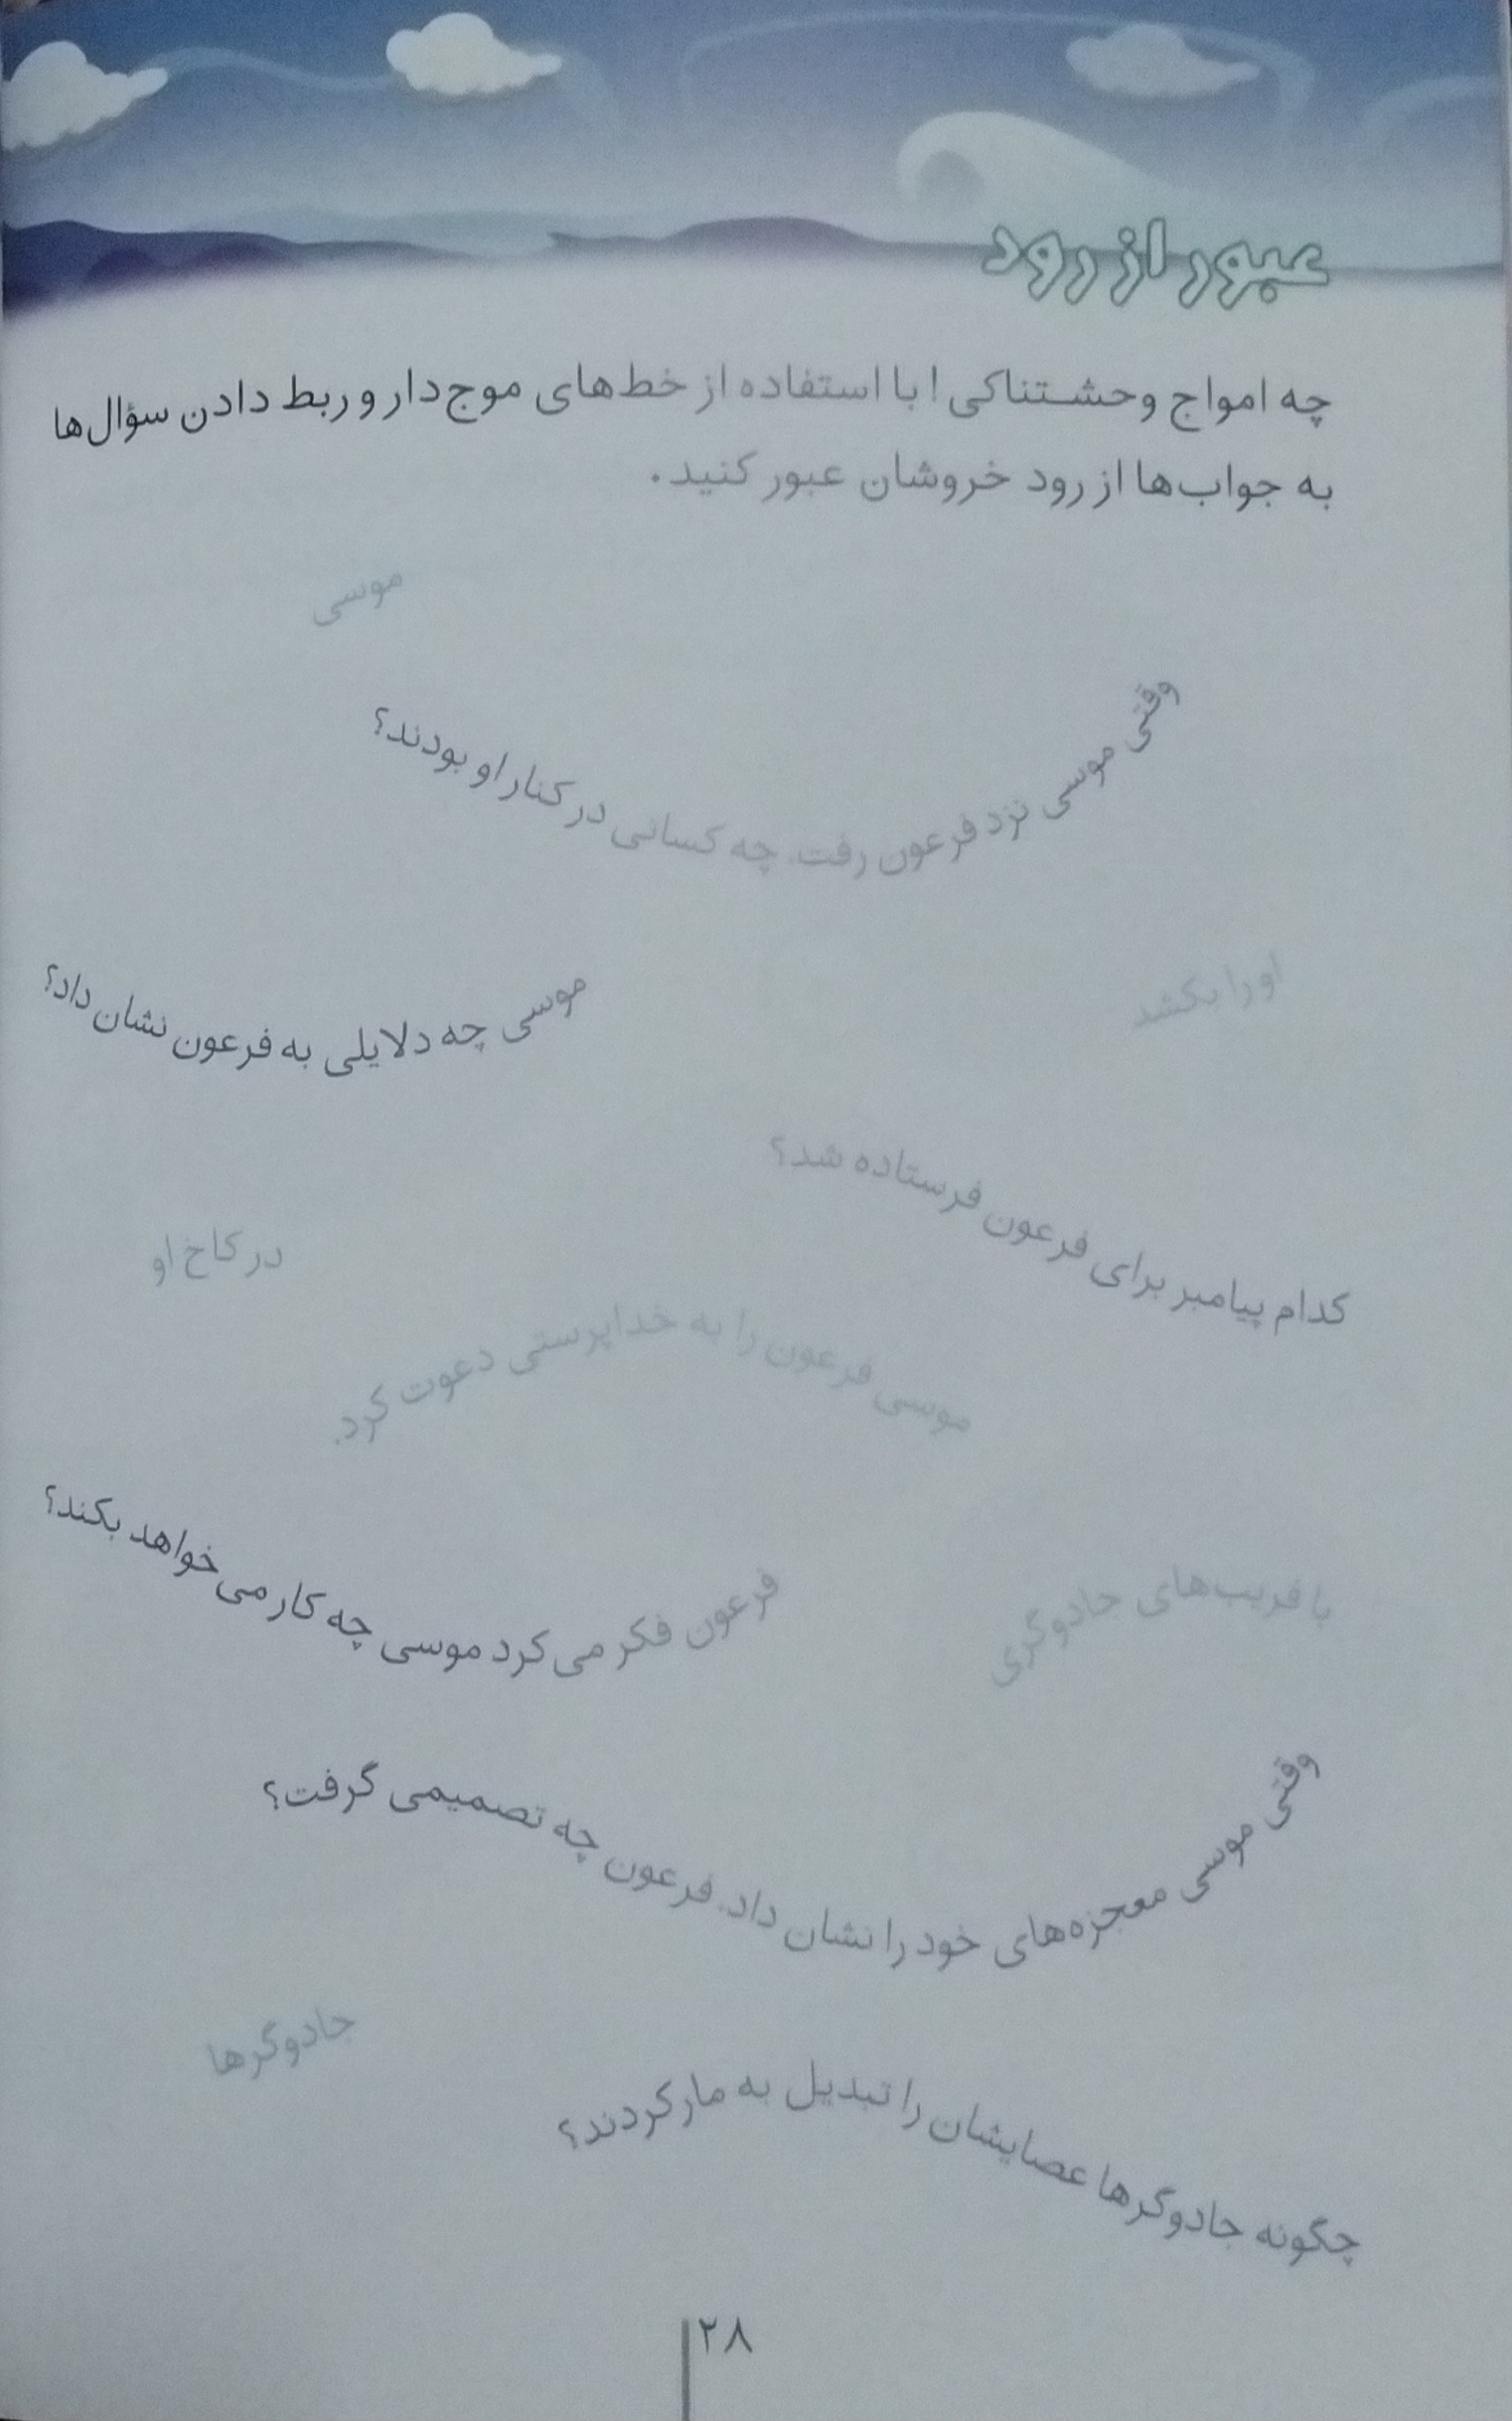 عبور از رود
چه امواج وحشتناکی ! با استفاده از خط‌های موج‌دار و ربط دادن سؤال‌ها
به جواب‌ها از رود خروشان عبور کنید.
موسی
وقتی موسی نزد فرعون رفت، چه کسانی در کنار او بودند؟
او را بکشد
موسی چه دلایلی به فرعون نشان داد؟
کدام پیامبر برای فرعون فرستاده شد؟
در کاخ او
موسی فرعون را به خداپرستی دعوت کرد.
فرعون فکر می‌کرد موسی چه کار می‌خواهد بکند؟
با فریب‌های جادوگری
وقتی موسی معجزه‌های خود را نشان داد، فرعون چه تصمیمی گرفت؟
جادوگرها
چگونه جادوگرها عصایشان را تبدیل به مار کردند؟
۲۸